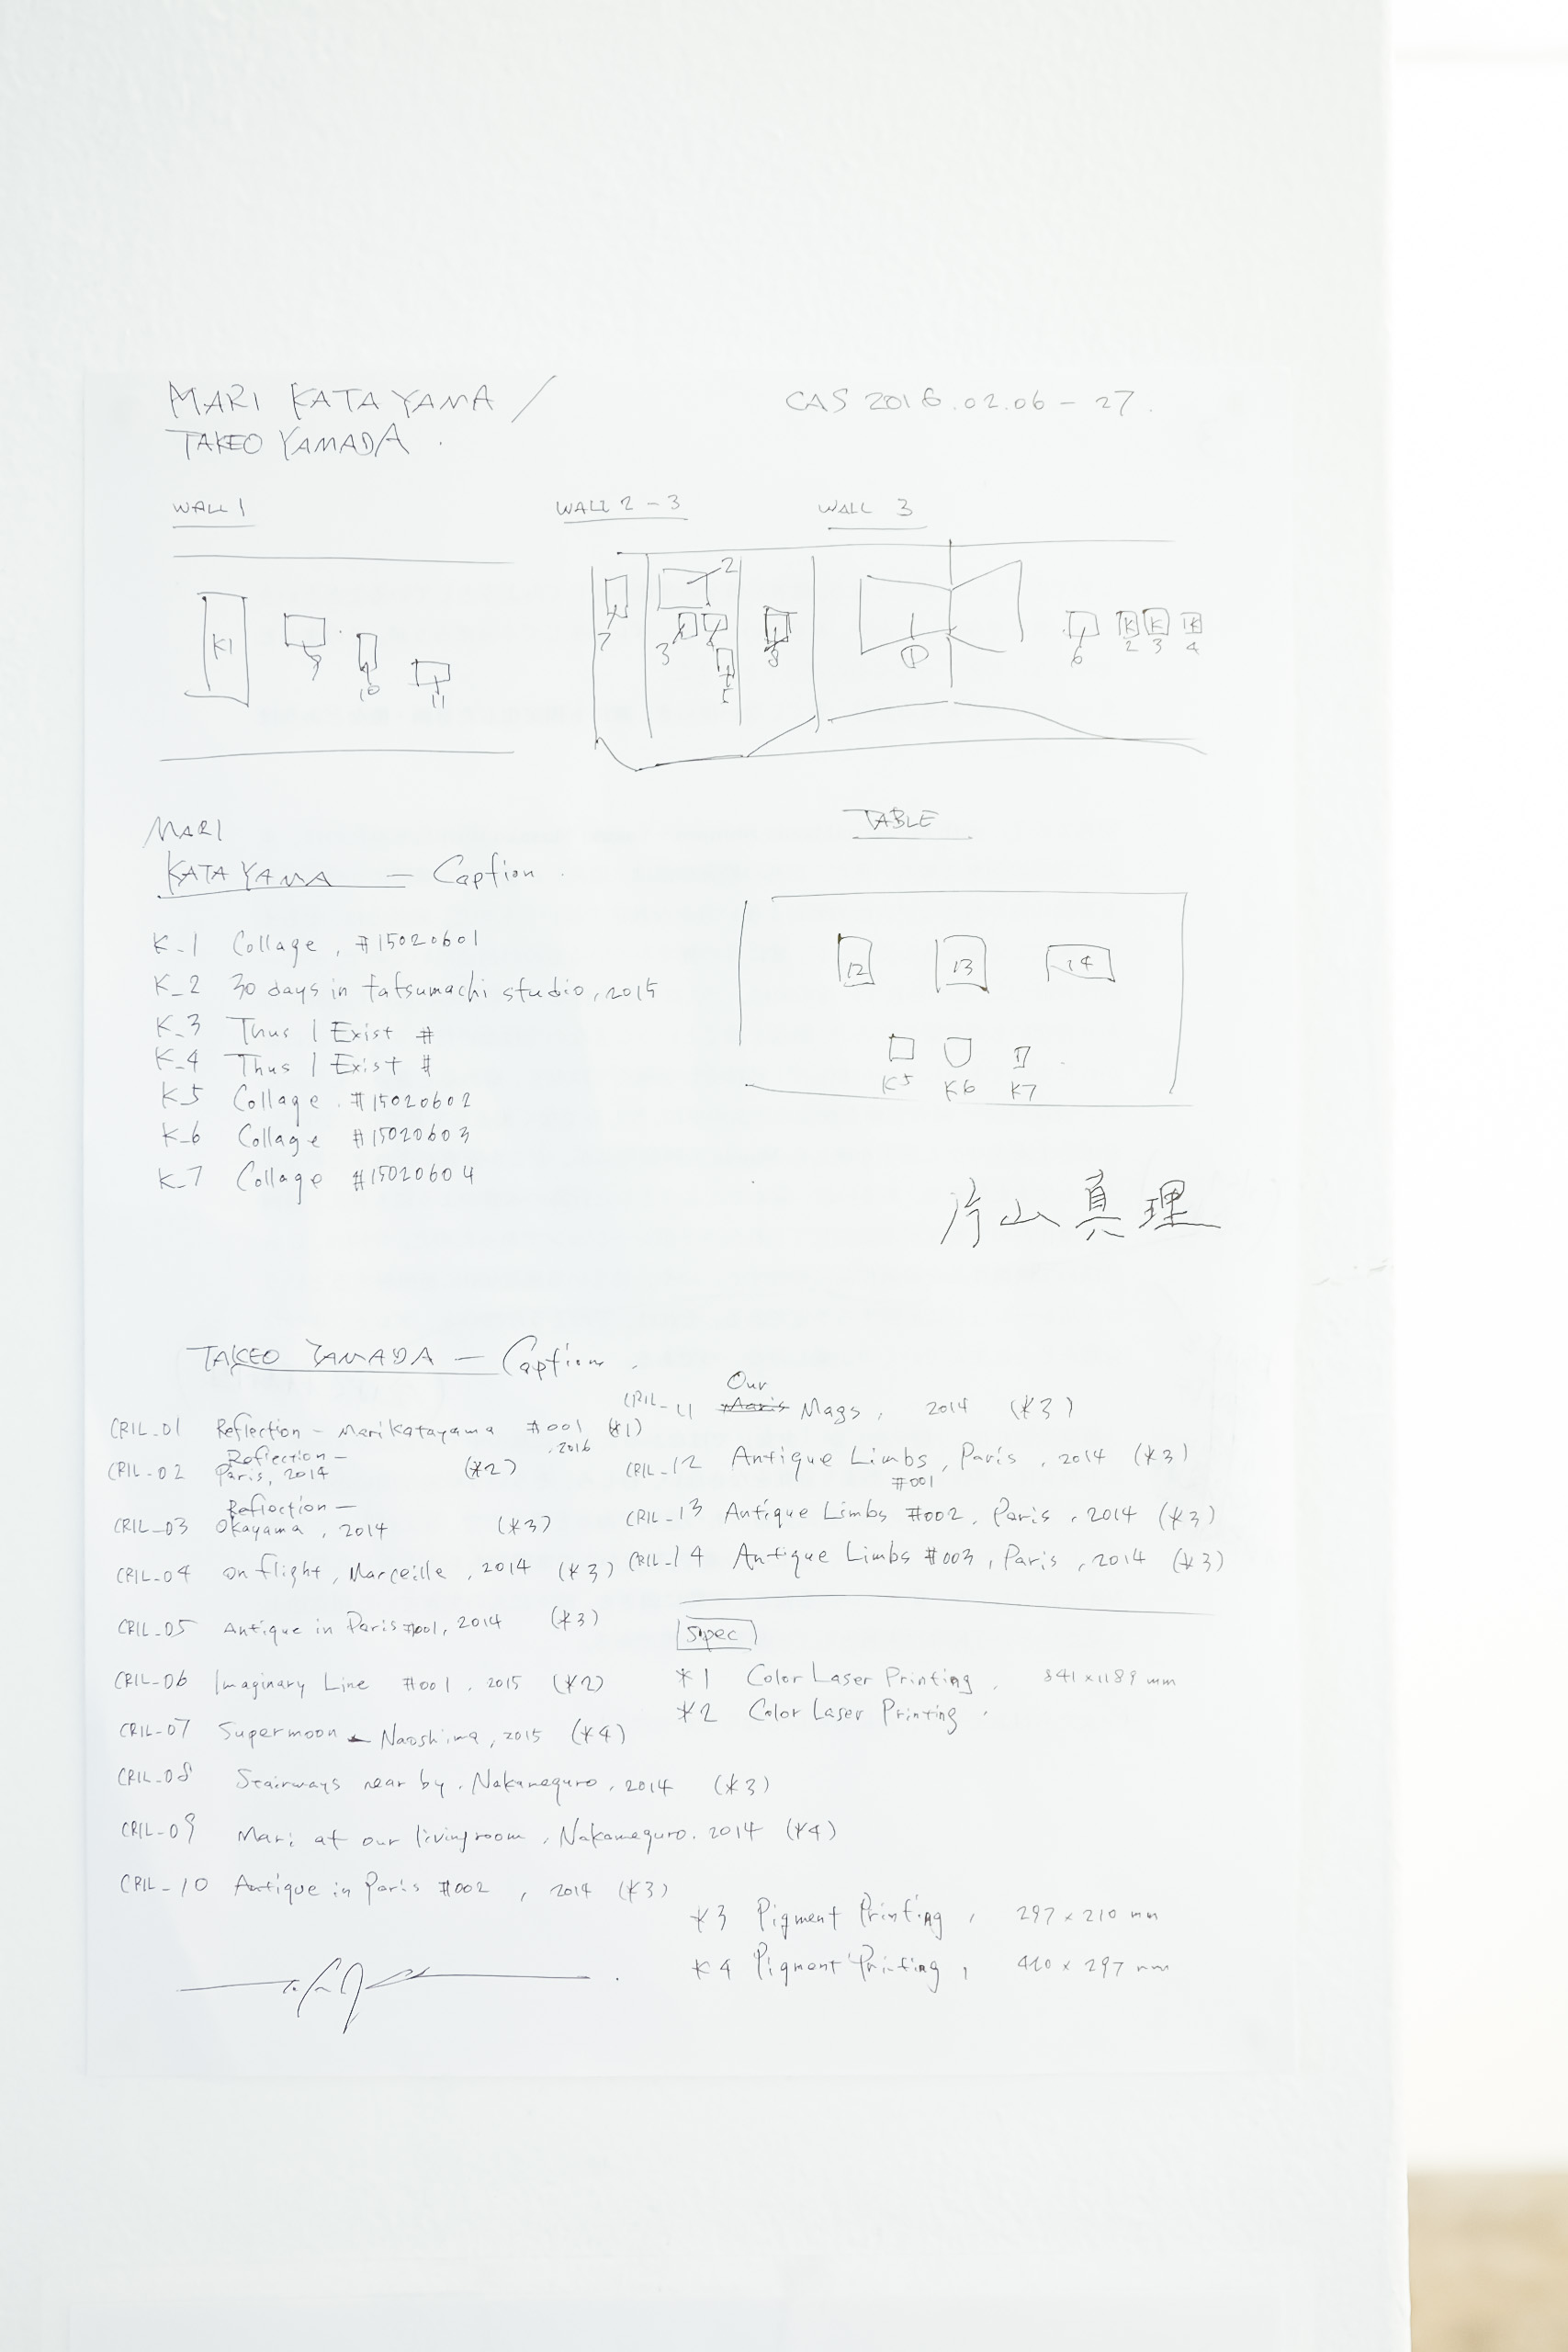 MARI KATAYAMA /
TAKEO YAMADA.
CAS 2016.02.06 - 27.
WALL 1
WALL 2 - 3
WALL 3
K1
9
10
11
7
2
3
4
5
8
1
6
K
2
K
3
K
4
MARI
KATAYAMA — Caption.
K_1 Collage, #15020601
K_2 30 days in tatsumachi studio, 2015
K_3 Thus I Exist #
K_4 Thus I Exist #
K_5 Collage. #15020602
K_6 Collage #15020603
K_7 Collage #15020604
TABLE
12
13
14
K5
K6
K7
片山真理
TAKEO YAMADA — Caption.
CRIL_01 Reflection - Mari Katayama #001 (*1)
, 2016
Reflection -
CRIL_02 Paris, 2014 (*2)
Reflection —
CRIL_03 Okayama, 2014 (*3)
CRIL_04 on flight, Marceille, 2014 (*3)
CRIL_05 Antique in Paris #001, 2014 (*3)
CRIL_06 Imaginary Line #001, 2015 (*2)
CRIL_07 Supermoon - Naoshima, 2015 (*4)
CRIL_08 Stairways near by, Nakameguro, 2014 (*3)
CRIL_09 Mari at our livingroom, Nakameguro. 2014 (*4)
CRIL_10 Antique in Paris #002, 2014 (*3)
Our
CRIL_11 Maris Mags, 2014 (*3)
CRIL_12 Antique Limbs, Paris, 2014 (*3)
#001
CRIL_13 Antique Limbs #002, Paris, 2014 (*3)
CRIL_14 Antique Limbs #003, Paris, 2014 (*3)
Spec
*1 Color Laser Printing, 841 x 1189 mm
*2 Color Laser Printing,
*3 Pigment Printing, 297 x 210 mm
*4 Pigment Printing, 420 x 297 mm